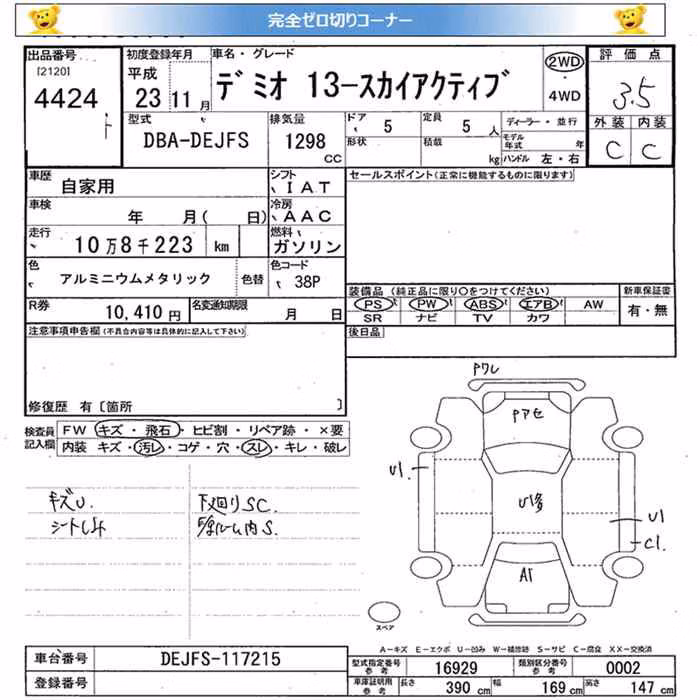 完全ゼロ切りコーナー
出品番号 初度登録年月 車名・グレード 評価点
[2120] 平成 デミオ 13-スカイアクティブ 2WD
4424 23 11月 ・ 4WD 3.5
型式 排気量 ドア 5 定員 5人 ディーラー・並行 外装 内装
DBA-DEJFS 1298 CC 形状 積載 kg モデル年式 年 ハンドル 左・右 C C
車歴 自家用 シフト IAT セールスポイント(正常に機能するものに限ります)
車検 年 月( 日) 冷房 AAC
走行 10万8千223 km 燃料 ガソリン
色 アルミニウムメタリック 色替 色コード 38P
装備品(純正品に限り○をつけてください) 新車保証書
R券 10,410円 名変通知期限 月 日 PS PW ABS エアB AW 有・無
SR ナビ TV カワ
注意事項申告欄(不具合内容等は具体的に記入して下さい) 後日品
修復歴 有〔箇所 〕
検査員記入欄 FW キズ・飛石・ヒビ割・リペア跡・×要
内装 キズ・汚レ・コゲ・穴・スレ・キレ・破レ
Pワレ
Pアセ
U1
キズU. 下廻りSC. U1多
U1
C1
A1
スペア
A-キズ E-エクボ U-凹み W-補修跡 S-サビ C-腐食 XX-交換済
車台番号 DEJFS-117215 型式指定番号 参考 16929 類別区分番号 参考 0002
登録番号 車庫証明用 参考 長さ 390cm 幅 169cm 高さ 147cm